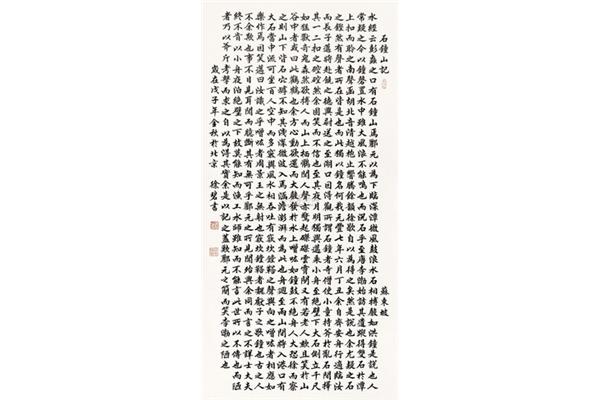 石鐘山記 蘇東坡
水經云彭蠡之口有石鐘山焉酈元以為下臨深潭微風鼓浪水石相搏聲如洪鐘是說也人
常疑之今以鐘磬置水中雖大風浪不能鳴也而況石乎至唐李渤始訪其遺蹤得雙石於潭
上扣而聆之南聲函胡北音清越枹止響騰餘韻徐歇自以為得之矣然是說也余尤疑之石
之鏗然有聲者所在皆是也而此獨以鐘名何哉元豐七年六月丁丑余自齊安舟行適臨汝
而長子邁將赴饒之德興尉送之至湖口因得觀所謂石鐘者寺僧使小童持斧於亂石間擇
其一二扣之硿硿然余固笑而不信也至其夜月明獨與邁乘小舟至絕壁下大石側立千尺
如猛獸奇鬼森然欲搏人而山上棲鶻聞人聲亦驚起磔磔雲霄間又有若老人欬且笑於山
谷中者或曰此鸛鶴也余方心動欲還而大聲發於水上噌吰如鐘鼓不絕舟人大恐徐而察
之則山下皆石穴罅不知其淺深微波入焉涵澹澎湃而為此也舟迴至兩山間將入港口有
大石當中流可坐百人空中而多竅與風水相吞吐有窾坎鏜鞳之聲與向之噌吰者相應如
樂作焉因笑謂邁曰汝識之乎噌吰者周景王之無射也窾坎鏜鞳者魏獻子之歌鐘也古之人
不余欺也事不目見耳聞而臆斷其有無可乎酈元之所見聞殆與余同而言之不詳士大夫
終不肯以小舟夜泊絕壁之下故莫能知而漁工水師雖知而不能言此世所以不傳也而陋
者乃以斧斤考擊而求之自以為得其實余是以記之蓋歎酈元之簡而笑李渤之陋也
歲在戊子年金秋於北京 徐書